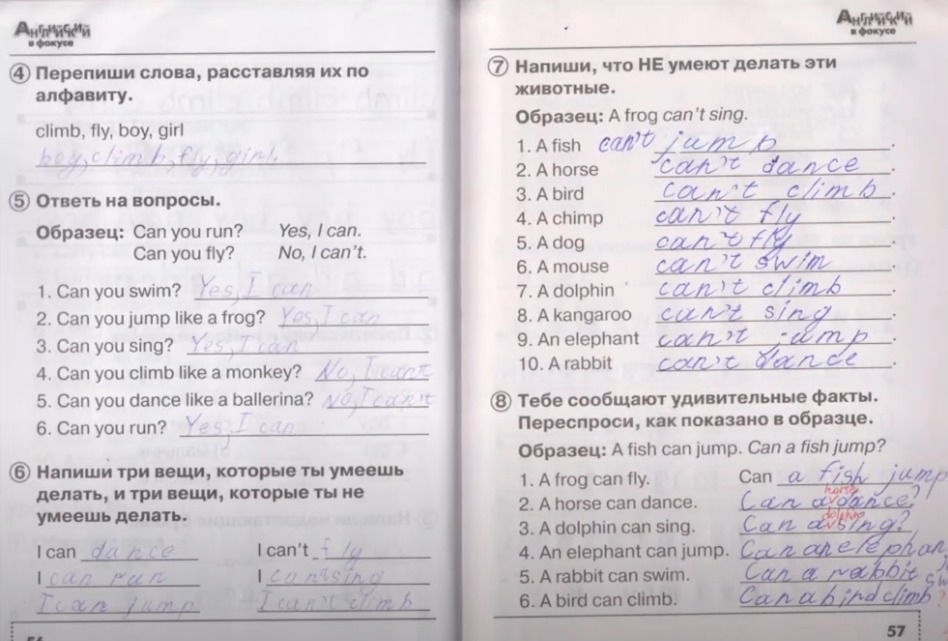 Английский
в фокусе
④ Перепиши слова, расставляя их по
алфавиту.
climb, fly, boy, girl
boy, climb, fly, girl.
⑤ Ответь на вопросы.
Образец: Can you run? Yes, I can.
Can you fly? No, I can't.
1. Can you swim? Yes, I can
2. Can you jump like a frog? Yes, I can
3. Can you sing? Yes, I can
4. Can you climb like a monkey? No, I cant
5. Can you dance like a ballerina? No, I can't
6. Can you run? Yes, I can
⑥ Напиши три вещи, которые ты умеешь
делать, и три вещи, которые ты не
умеешь делать.
I can dance I can't fly
I can run I can't sing
I can jump I can't climb
Английский
в фокусе
⑦ Напиши, что НЕ умеют делать эти
животные.
Образец: A frog can't sing.
1. A fish can't jump.
2. A horse can't dance.
3. A bird can't climb.
4. A chimp can't fly.
5. A dog can't fly.
6. A mouse can't swim.
7. A dolphin can't climb.
8. A kangaroo can't sing.
9. An elephant can't jump.
10. A rabbit can't dance.
⑧ Тебе сообщают удивительные факты.
Переспроси, как показано в образце.
Образец: A fish can jump. Can a fish jump?
1. A frog can fly. Can a fish jump
2. A horse can dance. Can a horse dance?
3. A dolphin can sing. Can a dolphin sing?
4. An elephant can jump. Can an elephan
5. A rabbit can swim. Can a rabbit
6. A bird can climb. Can a bird climb?
57